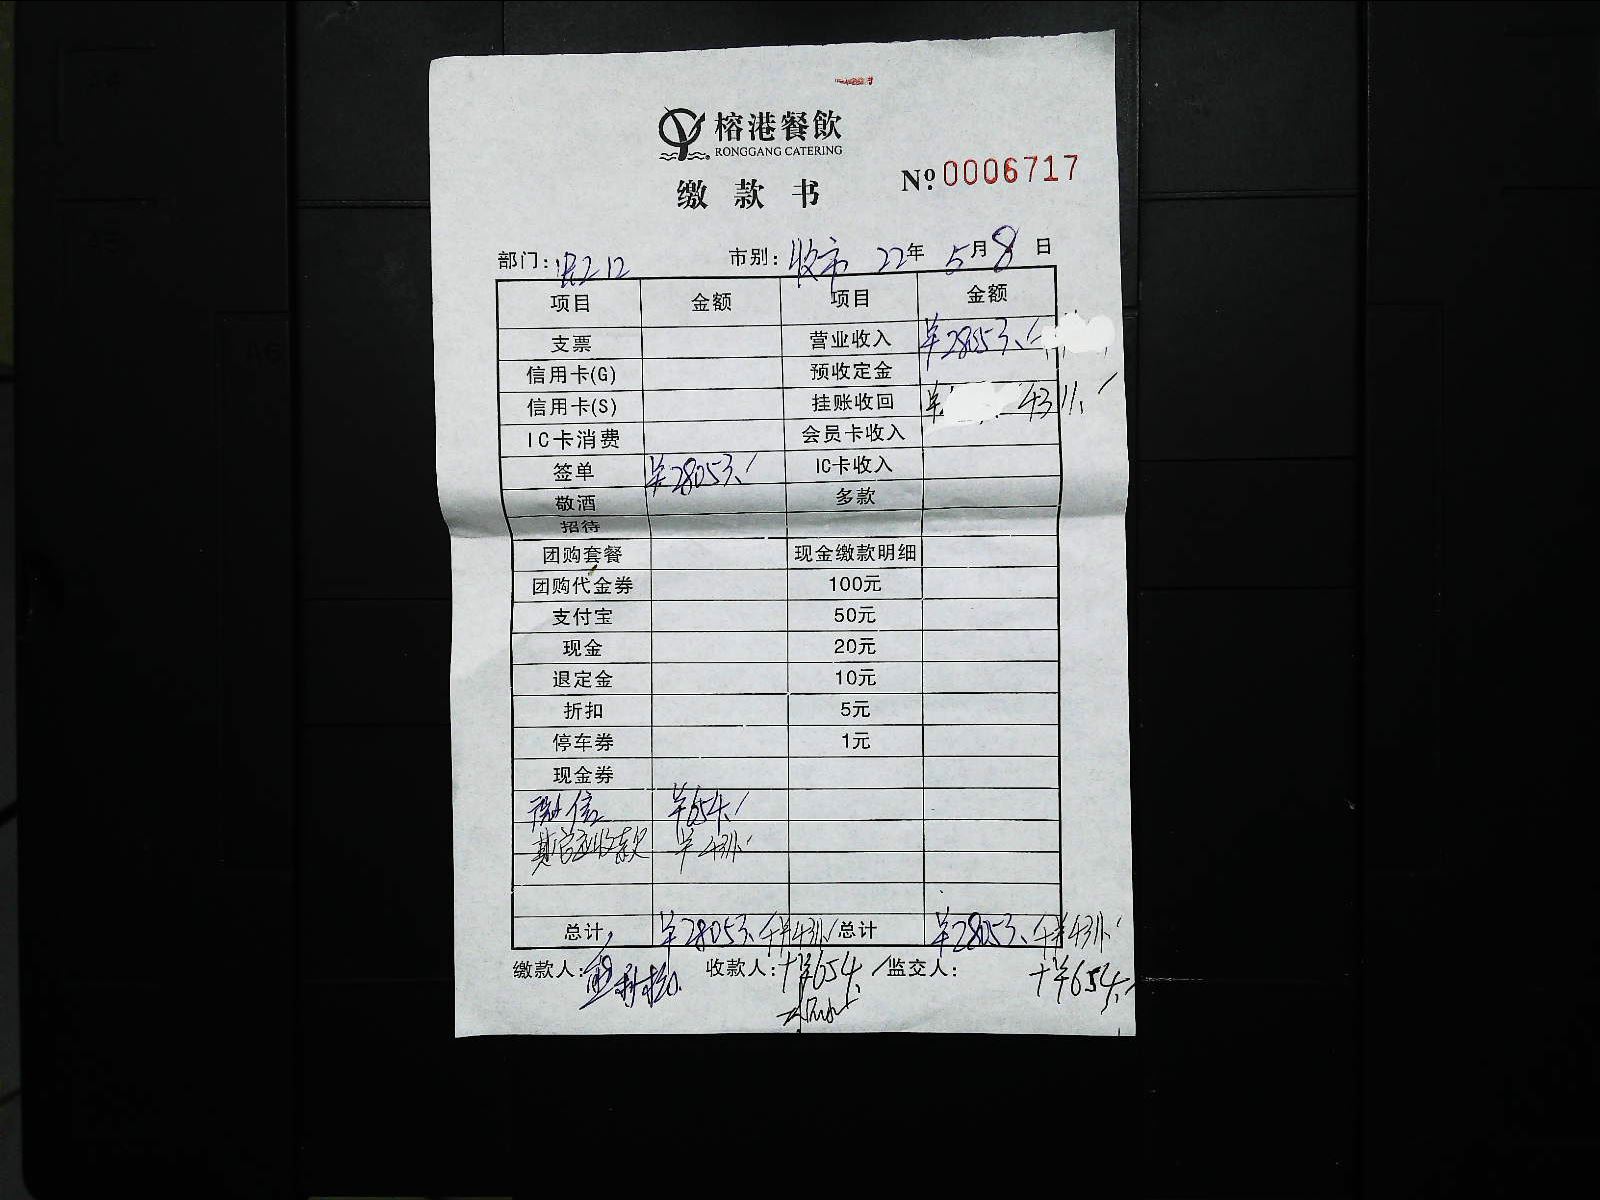 榕港餐飲
RONGGANG CATERING
缴款书
№ 0006717
部门: 市别: 收市 22年 5月 8日
项目 金额 项目 金额
支票 营业收入 ¥28053
信用卡(G) 预收定金
信用卡(S) 挂账收回 ¥ 4311.
IC卡消费 会员卡收入
签单 ¥28053 IC卡收入
敬酒 多款
招待
团购套餐 现金缴款明细
团购代金券 100元
支付宝 50元
现金 20元
退定金 10元
折扣 5元
停车券 1元
现金券
微信 ¥654
其它应收款 ¥4311
总计 ¥28053 +¥4311 总计 ¥28053 +¥4311
缴款人: 收款人: +¥654 监交人: +¥654